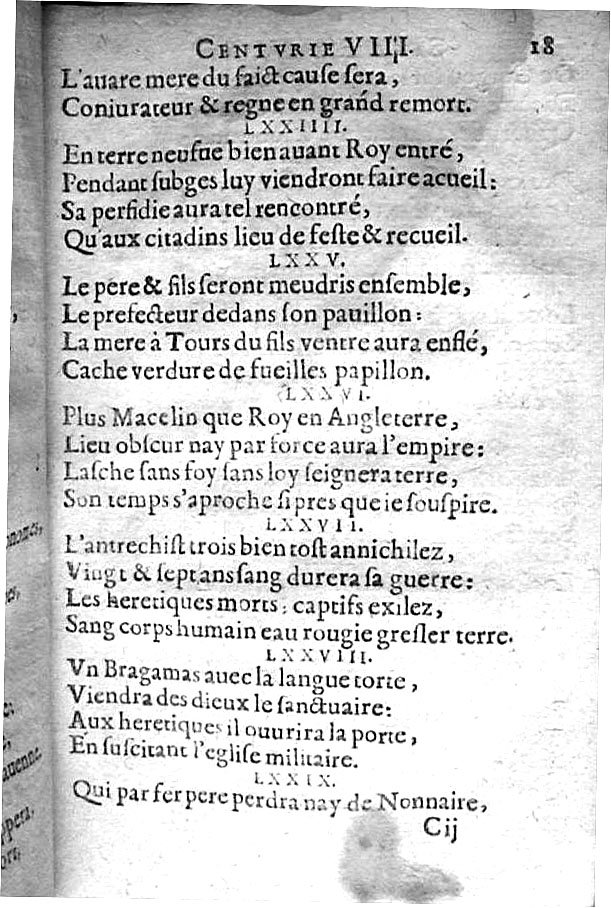 CENTVRIE VIII. 18
L'auare mere du faict cause sera,
Coniurateur & regne en grand remort.
LXXIIII.
En terre neufue bien auant Roy entré,
Pendant subges luy viendront faire acueil:
Sa perfidie aura tel rencontré,
Qu'aux citadins lieu de feste & recueil.
LXXV.
Le pere & fils seront meudris ensemble,
Le prefecteur dedans son pauillon:
La mere à Tours du fils ventre aura enflé,
Cache verdure de fueilles papillon.
LXXVI.
Plus Macelin que Roy en Angleterre,
Lieu obscur nay par force aura l'empire:
Lasche sans foy sans loy seignera terre,
Son temps s'aproche si pres que ie souspire.
LXXVII.
L'antrechist trois bien tost annichilez,
Vingt & sept ans sang durera sa guerre:
Les heretiques morts: captifs exilez,
Sang corps humain eau rougie gresler terre.
LXXVIII.
Vn Bragamas auec la langue torte,
Viendra des dieux le sanctuaire:
Aux heretiques il ouurira la porte,
En suscitant l'eglise militaire.
LXXIX.
Qui par fer pere perdra nay de Nonnaire,
Cij